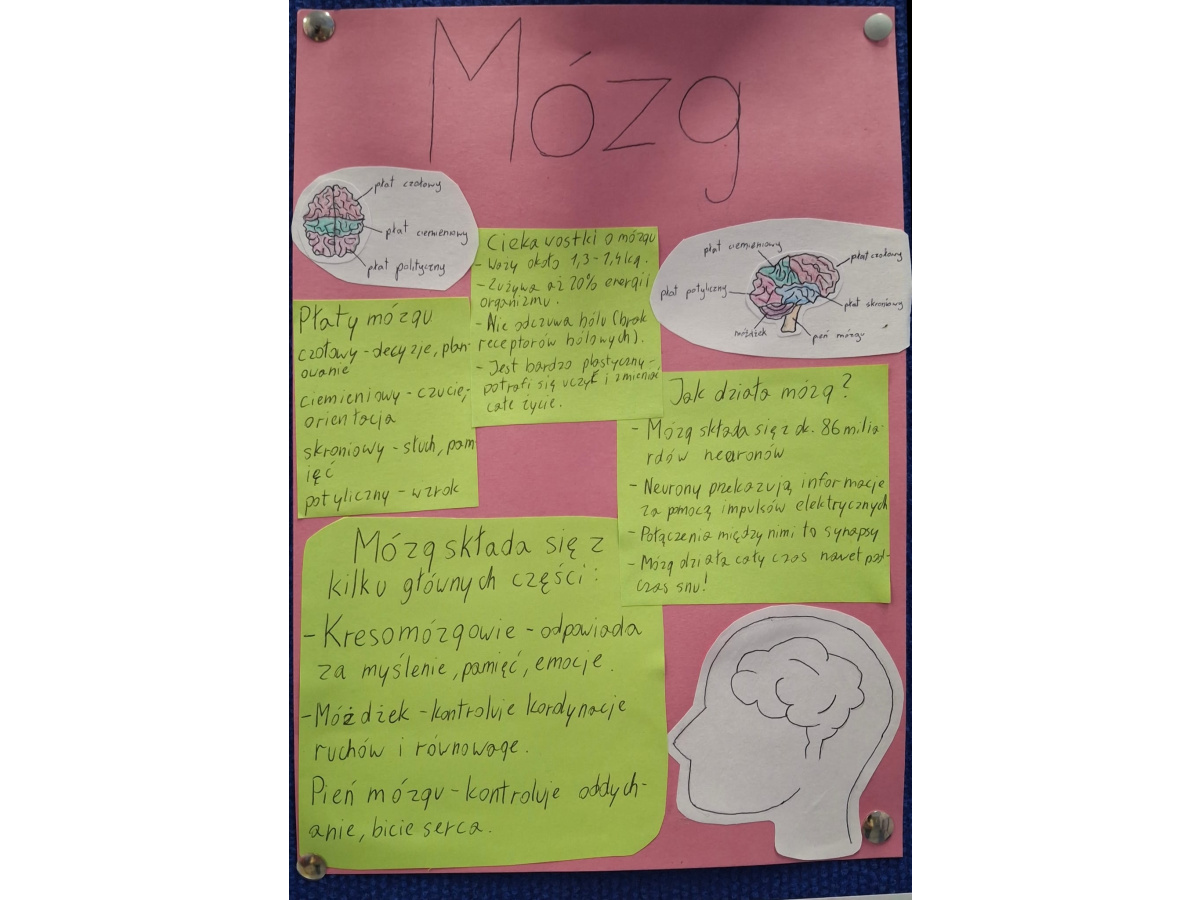 Mózg
płat czołowy
płat ciemieniowy
płat polityczny
Ciekawostki o mózgu
- Waży około 1,3-1,4kg.
- Zużywa aż 20% energii
organizmu.
- Nie odczuwa bólu (brak
receptorów bólowych).
- Jest bardzo plastyczny -
potrafi się uczyć i zmieniać
całe życie.
płat ciemieniowy
płat czołowy
płat potyliczny
płat skroniowy
móżdżek
pień mózgu
Płaty mózgu
czołowy - decyzje, plan-
owanie
ciemieniowy - czucie,
orientacja
skroniowy - słuch, pam
ięć
potyliczny - wzrok
Jak działa mózg?
- Mózg składa się z ok. 86 milia-
rdów neuronów
- Neurony przekazują informacje
za pomocą impulsów elektrycznych
- Połączenia między nimi to synapsy
- Mózg działa cały czas nawet pod-
czas snu!
Mózg składa się z
kilku głównych części:
- Kresomózgowie - odpowiada
za myślenie, pamięć, emocje.
- Móżdżek - kontroluje kordynacje
ruchów i równowagę.
Pień mózgu - kontroluje oddych-
anie, bicie serca.